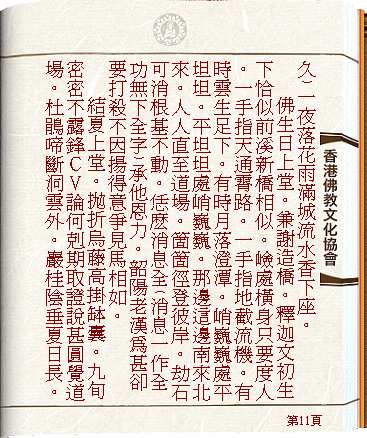 久)二夜落花雨滿城流水香下座。
佛生日上堂。兼謝造橋。釋迦文初生
下恰似前溪新橋相似。嶮處橫身只要度人
。一手指天通霄路。一手指地截流機。有
時雲生足下。有時月落澄潭。峭巍巍處平
坦坦。平坦坦處峭巍巍。那邊這邊南來北
來。人人直至道場。箇箇徑登彼岸。劫石
可消根基不動。恁麼消息全(消息一作全
功無下全字)承他恩力。韶陽老漢為甚卻
要打殺不因揚得意爭見馬相如。
結夏上堂。拋折烏藤高掛缽囊。九旬
密密不露鋒CV論何剋期取證說甚圓覺道
場。杜鵑啼斷洞雲外。巖桂陰垂夏日長。
香港佛教文化協會
第11頁